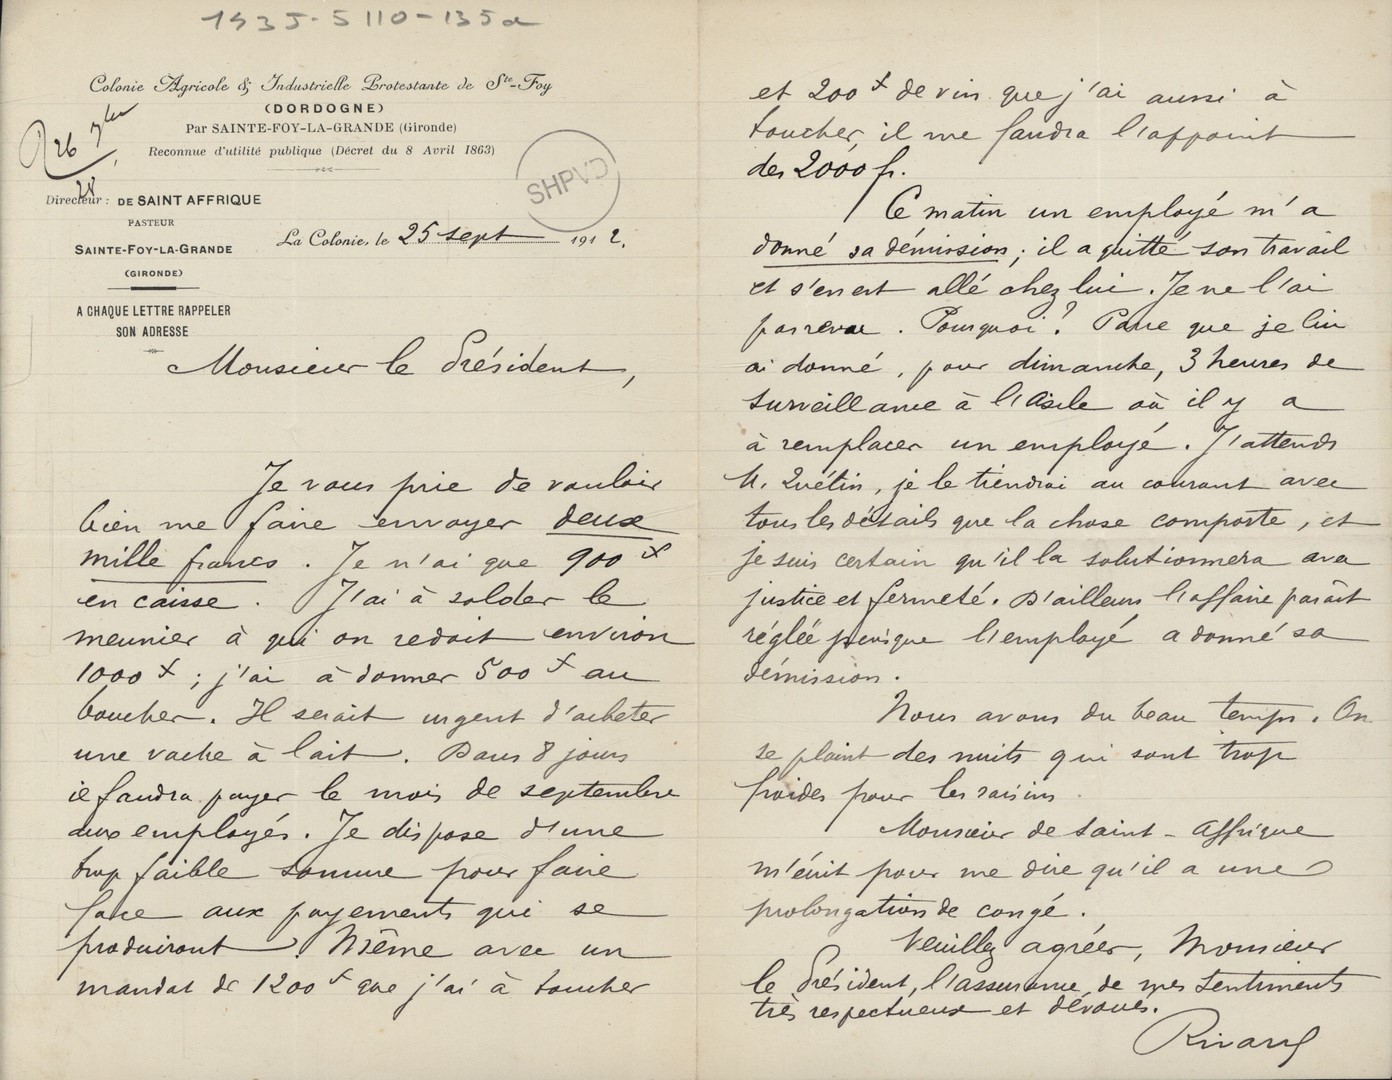 1935-5110-135a
Colonie Agricole & Industrielle Protestante de Ste-Foy
(DORDOGNE)
Par SAINTE-FOY-LA-GRANDE (Gironde)
Reconnue d'utilité publique (Décret du 8 Avril 1863)
R 26 7bre
28
SHPVD
Directeur : DE SAINT AFFRIQUE
PASTEUR
SAINTE-FOY-LA-GRANDE
(GIRONDE)
La Colonie, le 25 sept 1912.
A CHAQUE LETTRE RAPPELER
SON ADRESSE
Monsieur le Président,
Je vous prie de vouloir
bien me faire envoyer deux
mille francs. Je n'ai que 900 f
en caisse. J'ai à solder le
meunier à qui on redoit environ
1000 f ; j'ai à donner 500 f au
boucher. Il serait urgent d'acheter
une vache à lait. Dans 8 jours
il faudra payer le mois de septembre
aux employés. Je dispose d'une
trop faible somme pour faire
face aux payements qui se
produiront. Même avec un
mandat de 1200 f que j'ai à toucher
et 200 f de vin que j'ai aussi à
toucher, il me faudra l'appoint
des 2000 f.
Ce matin un employé m'a
donné sa démission; il a quitté son travail
et s'en est allé chez lui. Je ne l'ai
pas revu. Pourquoi? Parce que je lui
ai donné, pour dimanche, 3 heures de
surveillance à l'Asile où il y a
à remplacer un employé. J'attends
M. Quétin, je le tiendrai au courant avec
tous les détails que la chose comporte, et
je suis certain qu'il la solutionnera avec
justice et fermeté. D'ailleurs l'affaire paraît
réglée puisque l'employé a donné sa
démission.
Nous avons du beau temps. On
se plaint des nuits qui sont trop
froides pour les raisins.
Monsieur de Saint-Affrique
m'écrit pour me dire qu'il a une
prolongation de congé.
Veuillez agréer, Monsieur
le Président, l'assurance de mes sentiments
très respectueux et dévoués.